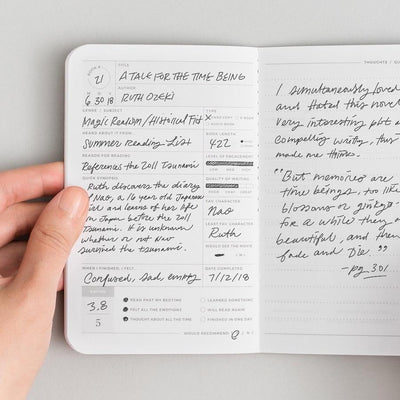 BOOK #
21
TITLE
A TALE FOR THE TIME BEING
AUTHOR
RUTH OZEKI
6 30 18
GENRE / SUBJECT
Magic Realism / Historical Fict
TYPE
HEARD ABOUT IT FROM
Summer Reading List
BOOK LENGTH
422
REASON FOR READING
References the 2011 Tsunami
LEVEL OF ENGAGEMENT
QUALITY OF WRITING
QUICK SYNOPSIS
Ruth discovers the diary
of Nao, a 16 year old Japanese
girl and learns of her life
in Japan before the 2011
Tsunami. It is unknown
whether or not Nao
survived the tsunami.
FAV CHARACTER
Nao
LEAST FAV CHARACTER
Ruth
WOULD SEE THE MOVIE
WHEN I FINISHED, I FELT
Confused, sad, empty
DATE COMPLETED
7/12/18
RATING
3.8
5
READ PAST MY BEDTIME
FELT ALL THE EMOTIONS
THOUGHT ABOUT ALL THE TIME
LEARNED SOMETHING
WILL READ AGAIN
FINISHED IN ONE DAY
WOULD RECOMMEND
THOUGHTS /
I simultaneously loved
and hated this novel
very interesting plot
compelling writing, this
made me think.
"But memories are
time beings, too, like
blossoms or ginkgo
for a while they a
beautiful, and then
fade and die."
-pg 301